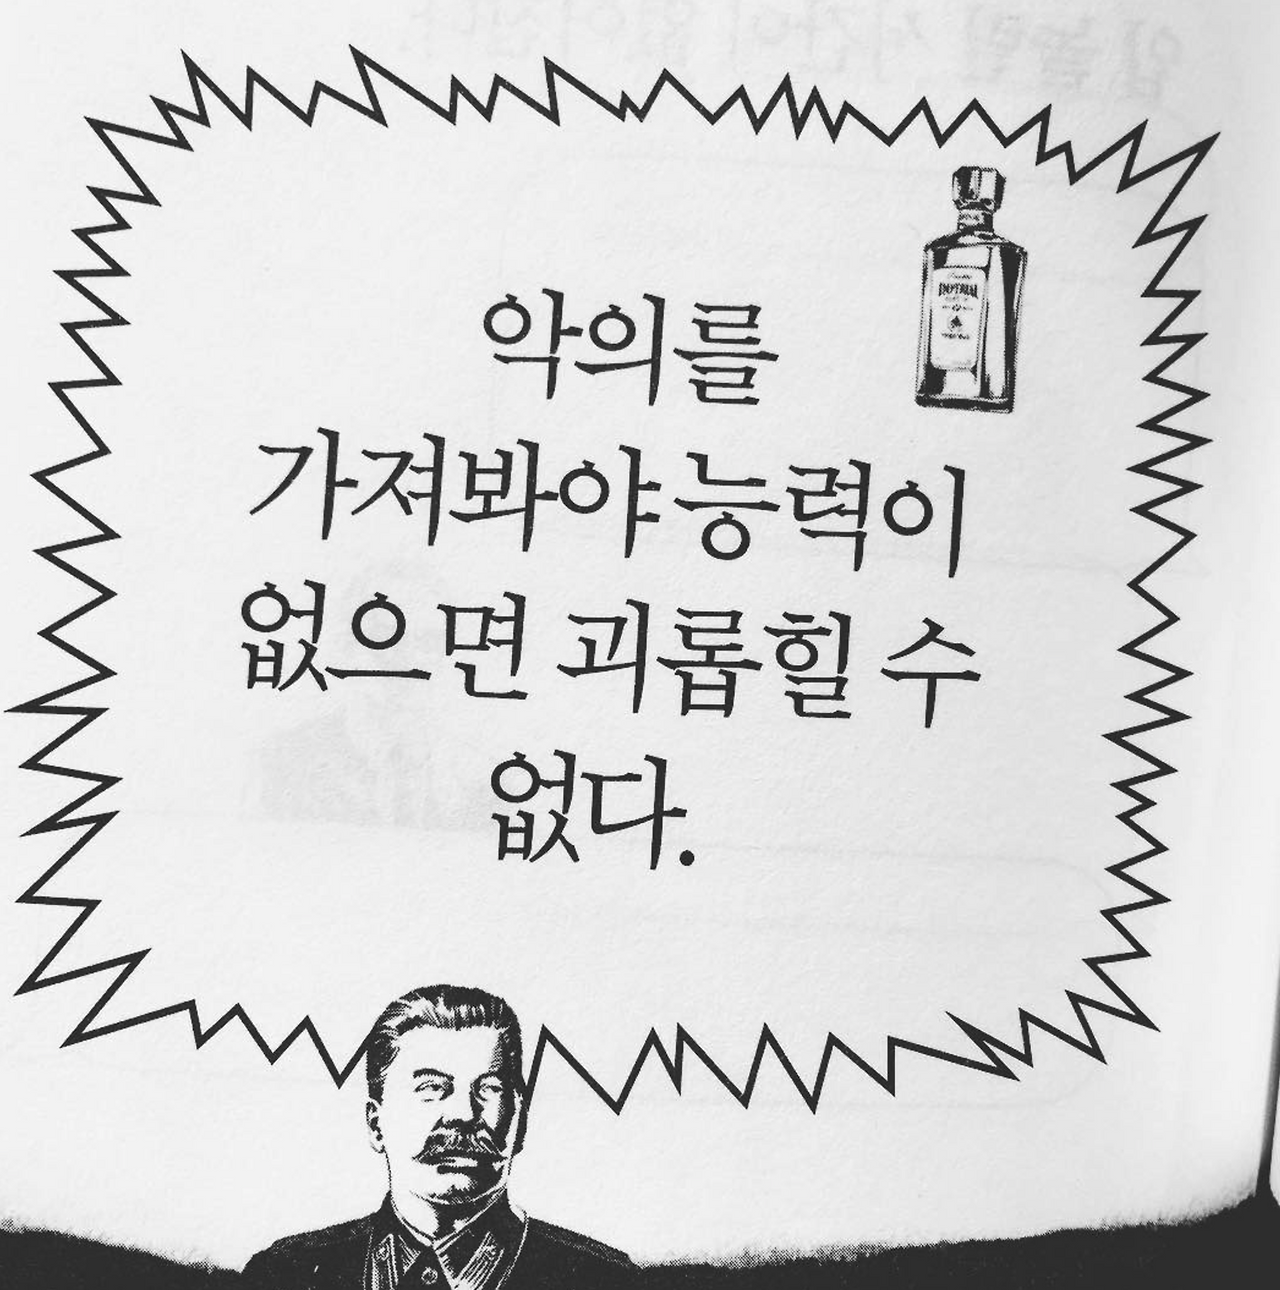 악의를
가져봐야 능력이
없으면 괴롭힐 수
없다.
IMPERIAL